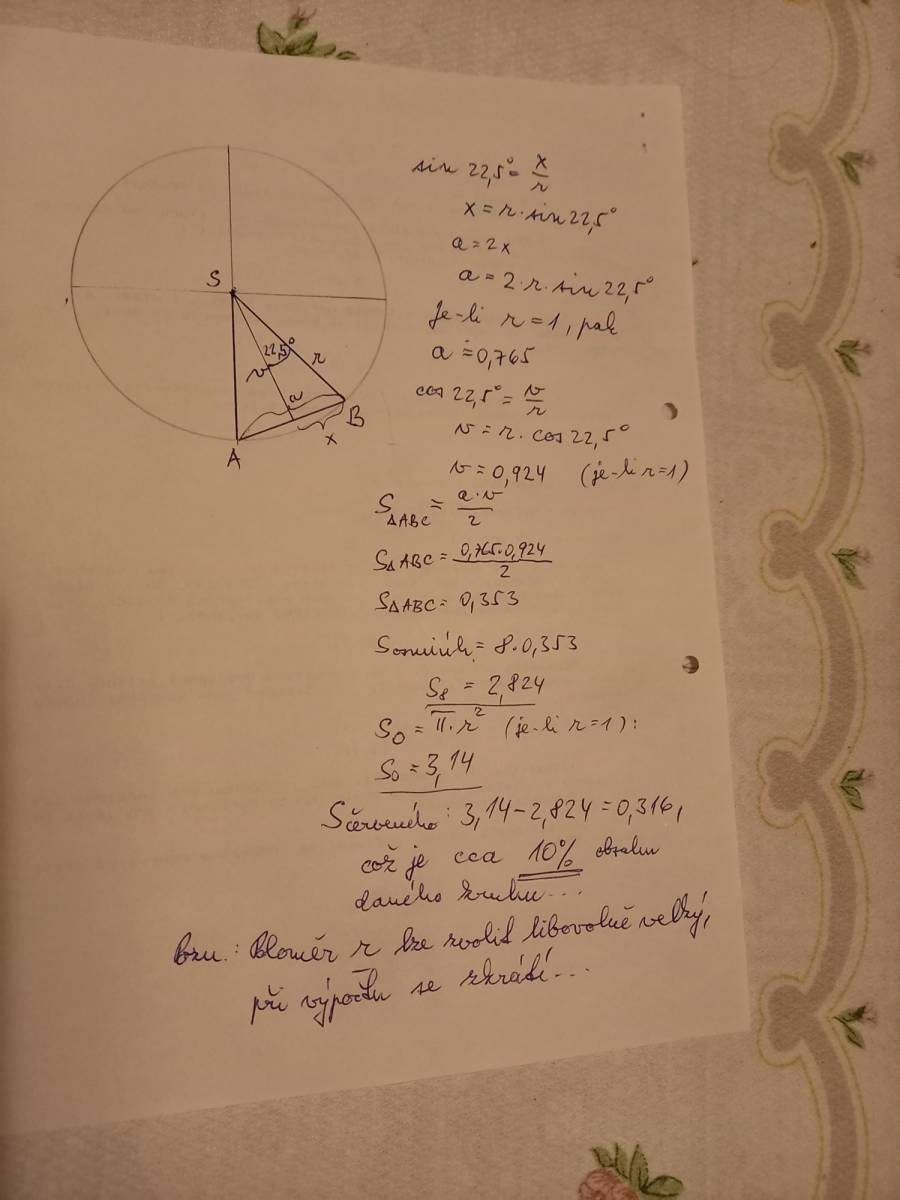 S
22,5°
v
r
a
B
x
A
sin 22,5° = x/r
x = r · sin 22,5°
a = 2x
a = 2 · r · sin 22,5°
Je-li r = 1, pak
a ≐ 0,765
cos 22,5° = v/r
v = r · cos 22,5°
v = 0,924 (je-li r=1)
S△ABC = a·v/2
S△ABC = 0,765·0,924/2
S△ABC = 0,353
Sosmiúh. = 8·0,353
S8 = 2,824
S○ = π·r² (je-li r=1):
S○ = 3,14
Sčerveného: 3,14 – 2,824 = 0,316,
což je cca 10% obsahu
daného kruhu...
Pozn.: Poloměr r lze zvolit libovolně velký,
při výpočtu se zkrátí...